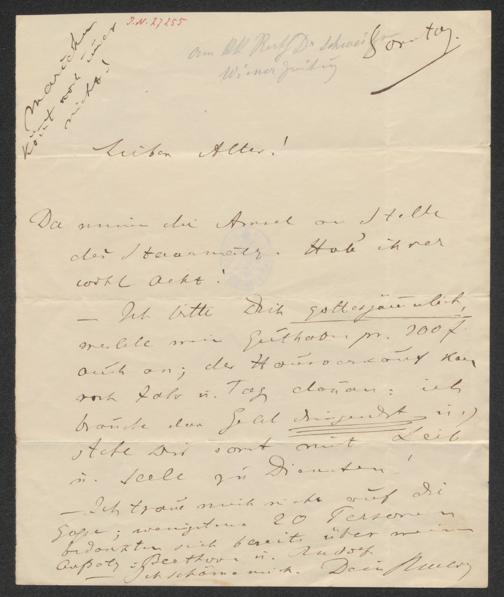 J.N. 27255
Sonntag.
Wiener Zeitung
nicht!
Lieber Alter!
Da nimm die Amsel an Stelle
des Staarmatz. Hab' ihrer
wohl Acht!
— Ich bitte Dich gottesjämmerlich,
melde mein Guthaben pr. 200 f
auch an; der Hausverkauf kann
noch Jahr u. Tag dauern: ich
brauche das Geld dringendst u.
stehe Dir sonst mit Leib
u. Seele zu Diensten!
— Ich traue mich nicht auf die
Gasse; wenigstens 20 Personen
bedankten sich bereits über meinen
Aufsatz: Beethoven u. Rudolf
— Ich schäme mich. Dein